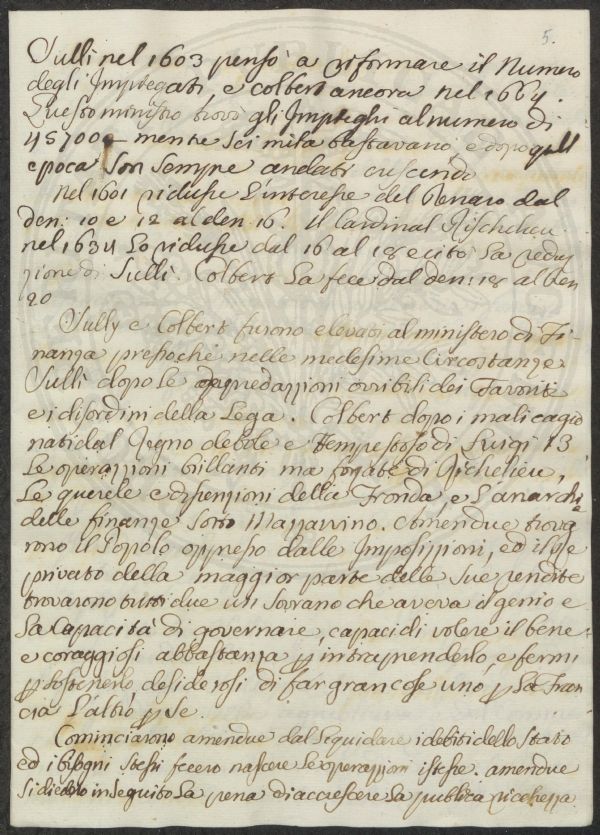 5.
Sulli nel 1603 pensò a riformare il Numero
degli Impiegati, e Colbert ancora nel 1664.
Questo ministro trovò gli Impieghi al numero di
45700 mentre sei mila bastavano, e dopo quell
epoca son sempre andati crescendo
Nel 1601 ridusse L'interesse del Denaro dal
den: 10 e 12 al den 16. Il Cardinal Richelieu
nel 1634 Lo ridusse dal 16 al 18 e citò La redu
zione di Sulli. Colbert La fece dal den: 18 al Den
20
Sully e Colbert furono elevati al ministero di Fi
nanza pressochè nelle medesime Circostanze
Sulli dopo Le depredazzioni orribili dei Favoriti
e i disordini della Lega. Colbert dopo i mali cagio
nati dal Regno debole e tempestoso di Luigi 13
Le operazzioni brillanti ma forzate di Richelieu,
Le querele e dissenzioni della Fronda, e L'anarchia
delle finanze sotto Mazzarrino. Amendue trova
rono il Popolo oppresso dalle Imposizzioni, ed il Re
privato della maggior parte delle sue rendite
trovarono tutti due un Sovrano che aveva il genio e
La Capacità di governare, capaci di volere il bene
e coraggiosi abbastanza p intraprenderlo, e fermi
p sostenerlo desiderosi di far gran cose uno p La Fran
cia L'altro p se.
Cominciarono amendue dal Liquidare i debiti dello Stato
ed i bisogni stessi fecero nascere Le operazzioni istesse. amendue
si diedero in seguito La pena di accrescere La publica ricchezza